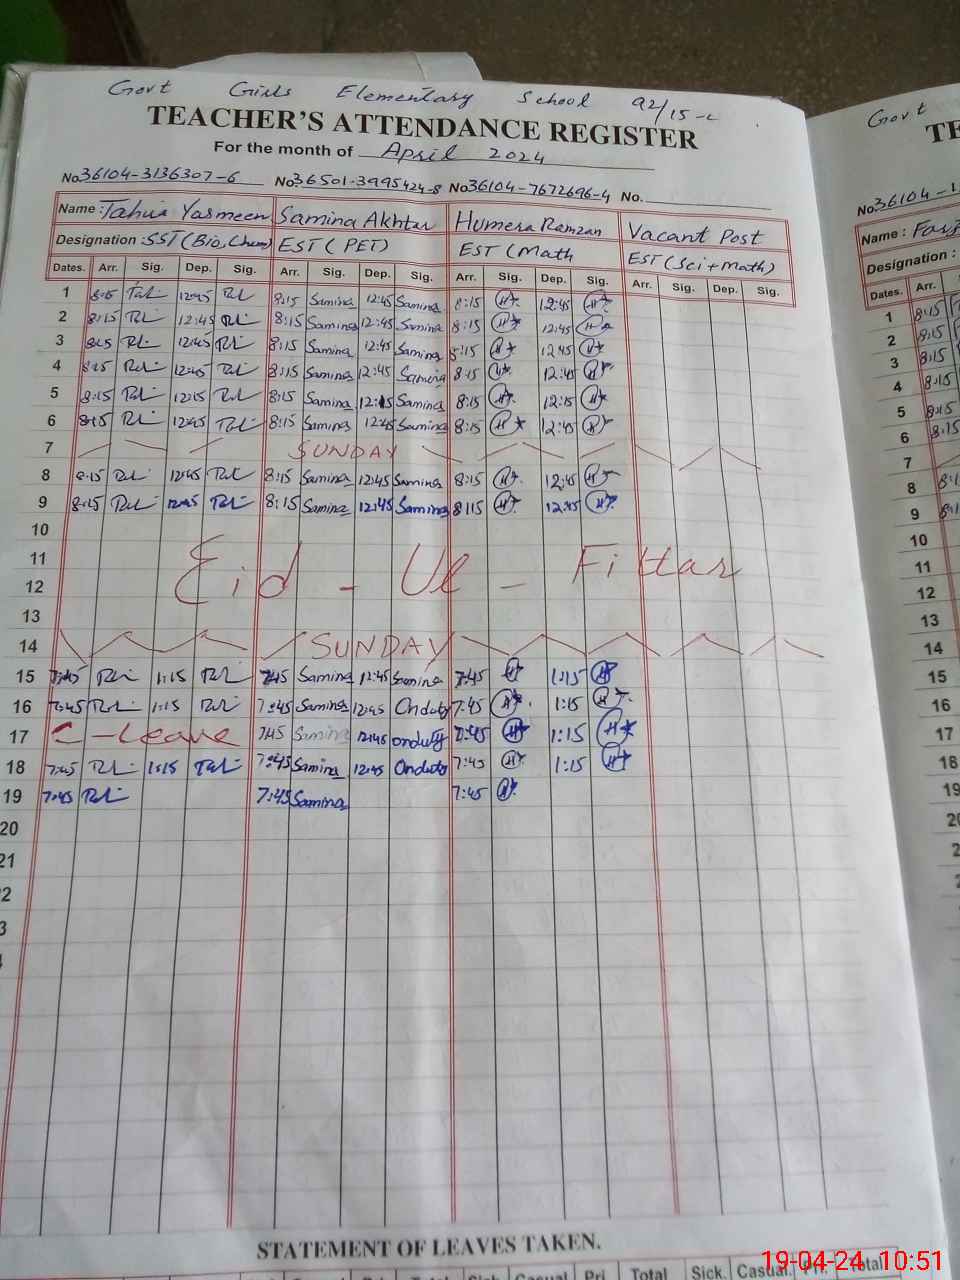 Govt Girls Elementary School 92/15-L
TEACHER'S ATTENDANCE REGISTER
For the month of April 2024
No 36104-3136307-6 No. 36501-3995424-8 No 36104-7672696-4 No.
Name : Tahira Yasmeen Samina Akhtar Humera Ramzan Vacant Post
Designation : SST (Bio, Chem) EST (PET) EST (Math EST (Sci + Math)
Dates. Arr. Sig. Dep. Sig. Arr. Sig. Dep. Sig. Arr. Sig. Dep. Sig. Arr. Sig. Dep. Sig.
1 8:15 12:45 8:15 Samina 12:45 Samina 8:15 12:45
2 8:15 12:45 8:15 Samina 12:45 Samina 8:15 12:45
3 8:15 12:45 8:15 Samina 12:45 Samina 8:15 12:45
4 8:15 12:45 8:15 Samina 12:45 Samina 8:15 12:45
5 8:15 12:15 8:15 Samina 12:15 Samina 8:15 12:15
6 8:15 12:45 8:15 Samina 12:45 Samina 8:15 12:45
7 SUNDAY
8 8:15 12:45 8:15 Samina 12:45 Samina 8:15 12:45
9 8:15 12:45 8:15 Samina 12:45 Samina 8:15 12:45
10
11
12 Eid - Ul - Fittar
13
14 SUNDAY
15 7:45 1:15 7:45 Samina 12:45 Samina 7:45 1:15
16 7:45 1:15 7:45 Samina 12:45 Onduty 7:45 1:15
17 C-Leave 7:45 Samina 12:45 onduty 7:45 1:15
18 7:45 1:15 7:45 Samina 12:45 Onduty 7:45 1:15
19 7:45 7:45 Samina 7:45
20
21
2
3
STATEMENT OF LEAVES TAKEN.
Total Sick. Casual. Pri. Total
Govt
TE
No 36104-1
Name :
Designation :
Dates. Arr.
1 8:15
2 8:15
3 8:15
4 8:15
5 8:15
6 8:15
7
8
9
10
11
12
13
14
15
16
17
18
19
20
21
19-04-24 10:51